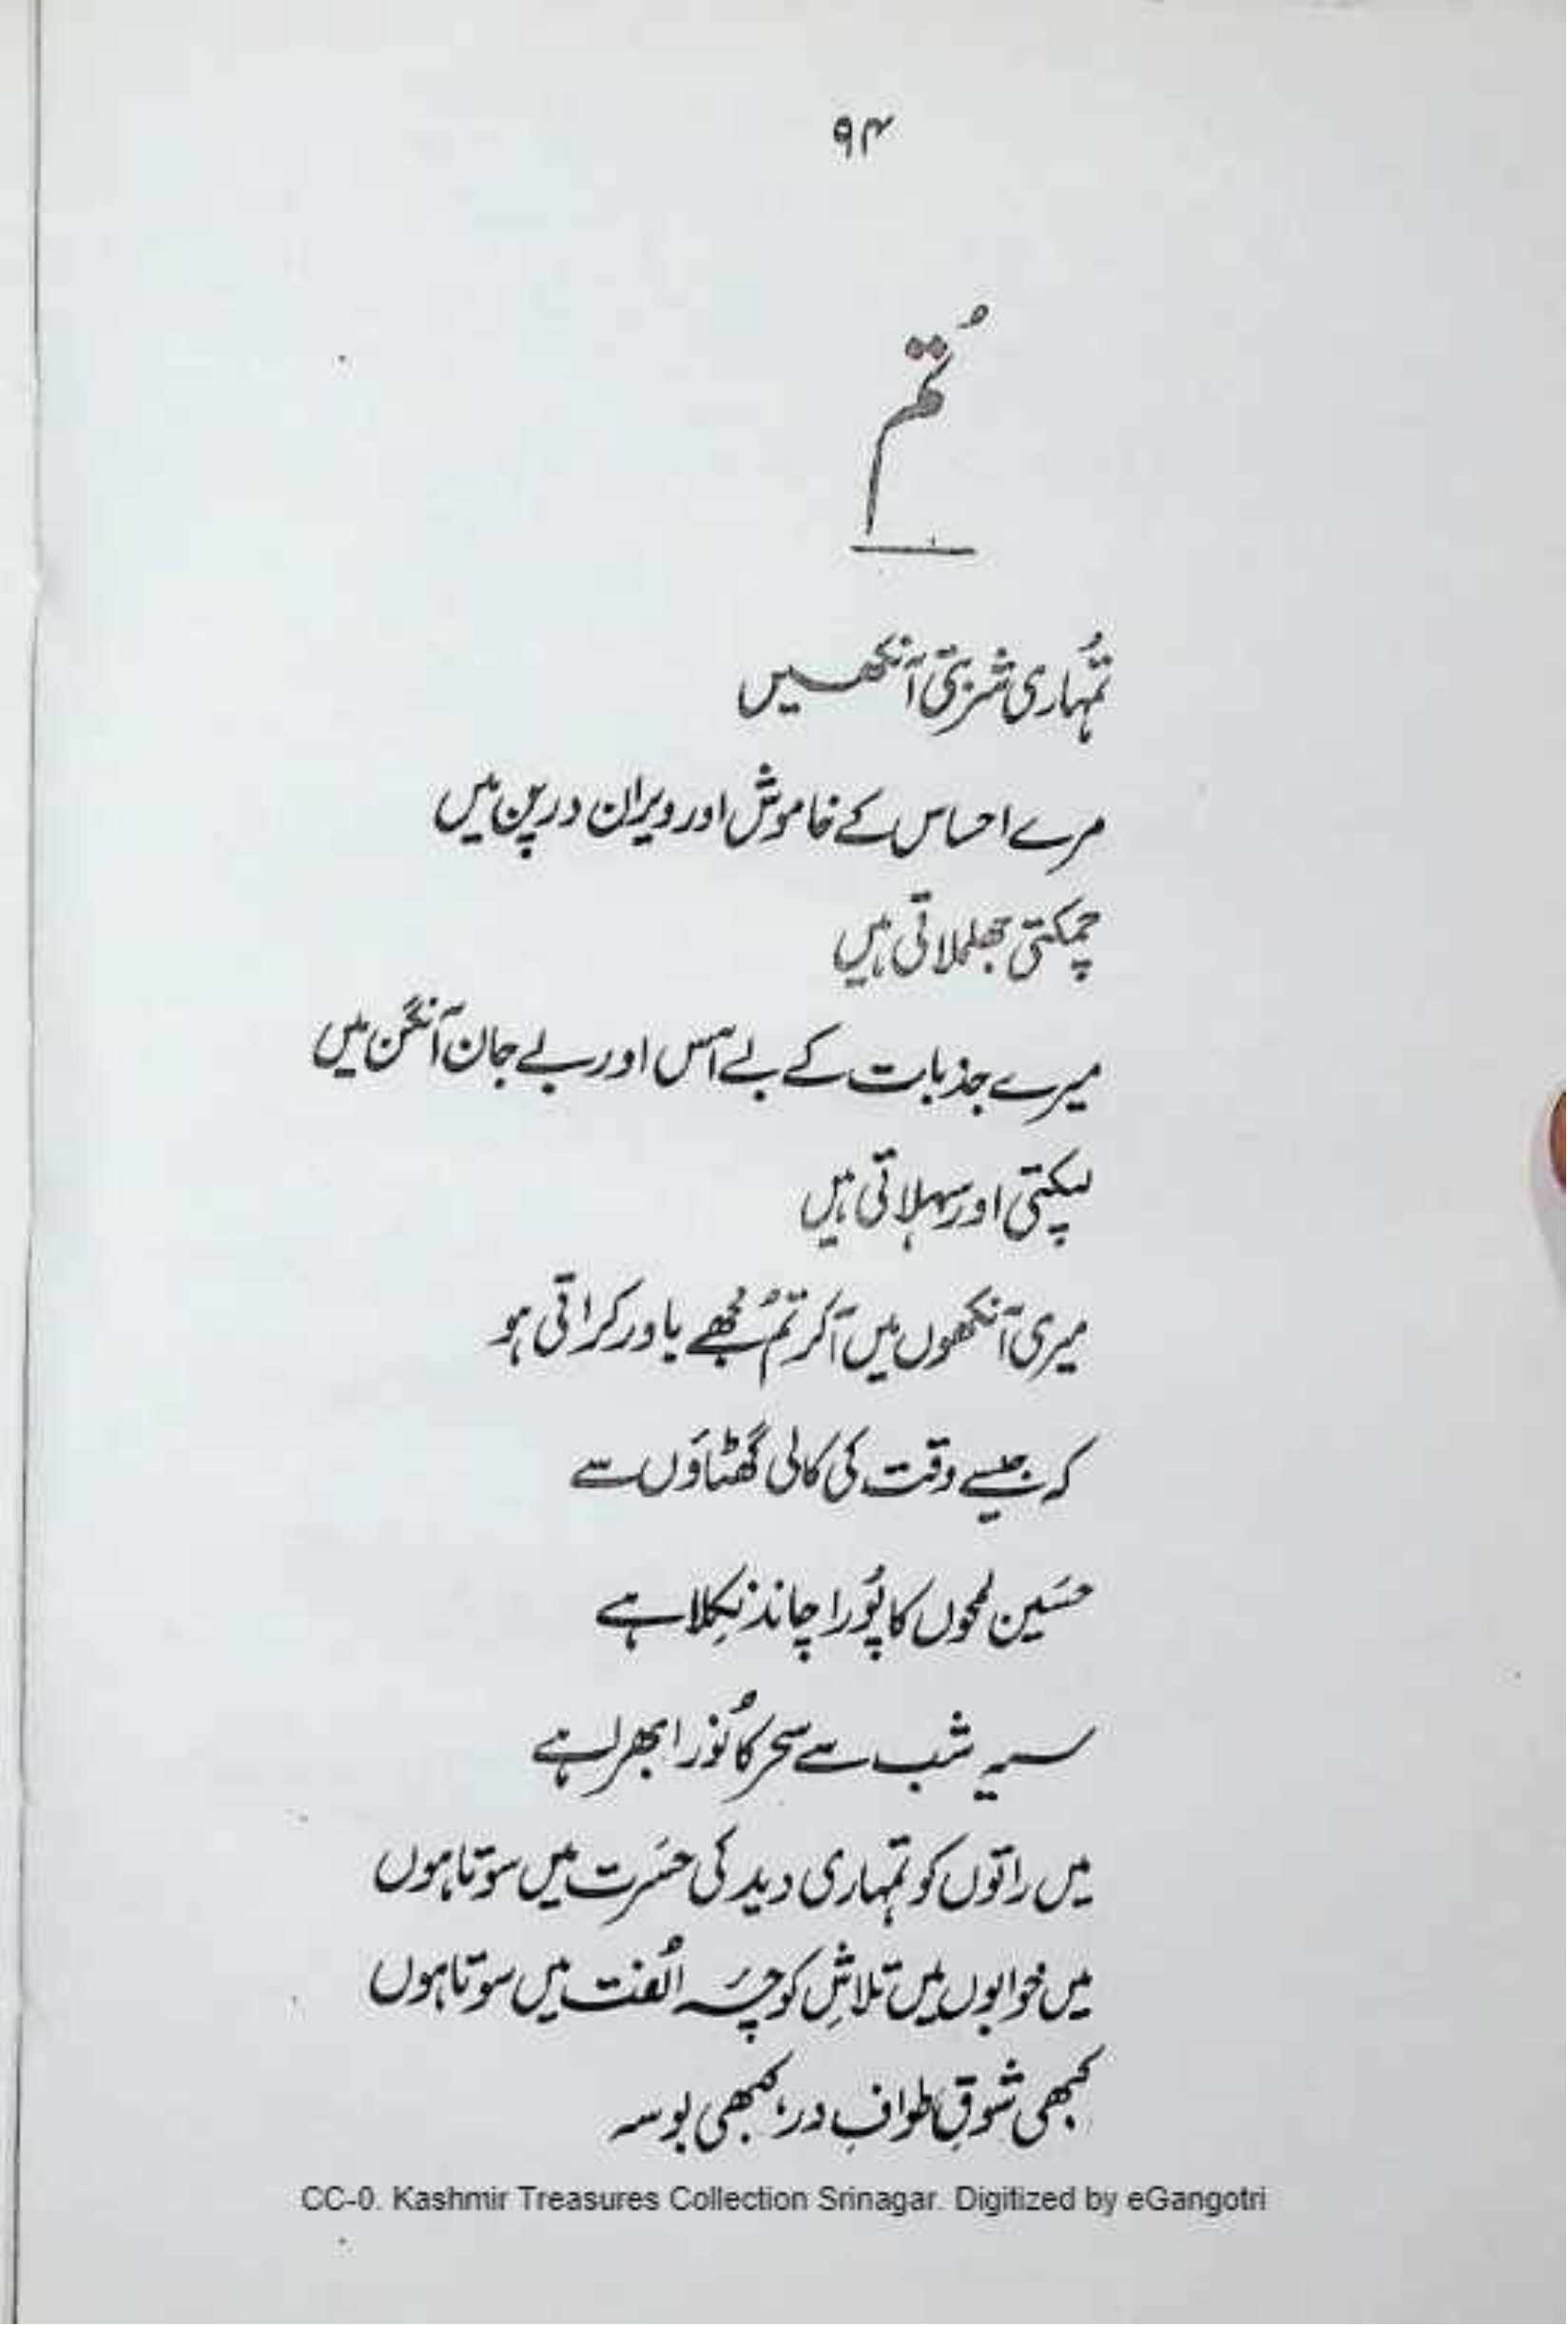 ۹۴
تُم
تمُہاری شربتی آنکھیں
مرے احساس کے خاموش اور ویران درپن میں
چمکتی جھلملاتی ہیں
میرے جذبات کے بے آس اور بے جان آنگن میں
لپکتی اور سہلاتی ہیں
میری آنکھوں میں آکر تمُ مُجھے باور کراتی ہو
کہ جیسے وقت کی کالی گھٹاؤں سے
حسَین لمحوں کا پوُرا چاند نِکلا ہے
سیہ شب سے سحر کا نوُر ابھرا ہے
میں راتوں کو تمہاری دید کی حسَرت میں سوتا ہوں
میں خوابوں میں تلاشِ کوچہَ الُفت میں سوتا ہوں
کبھی شوقِ طوافِ در، کبھی بوسہ
CC-0. Kashmir Treasures Collection Srinagar. Digitized by eGangotri